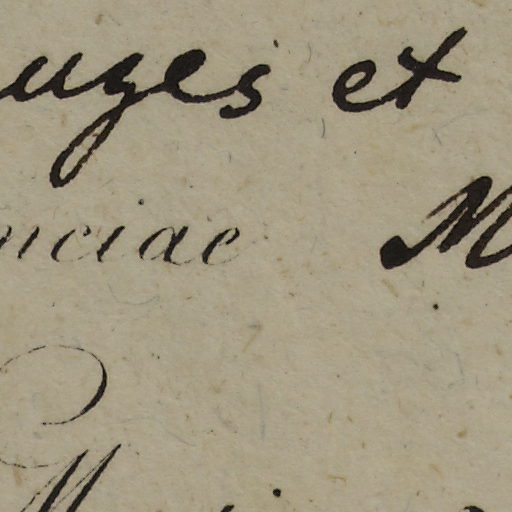 uges et
nciae M
M